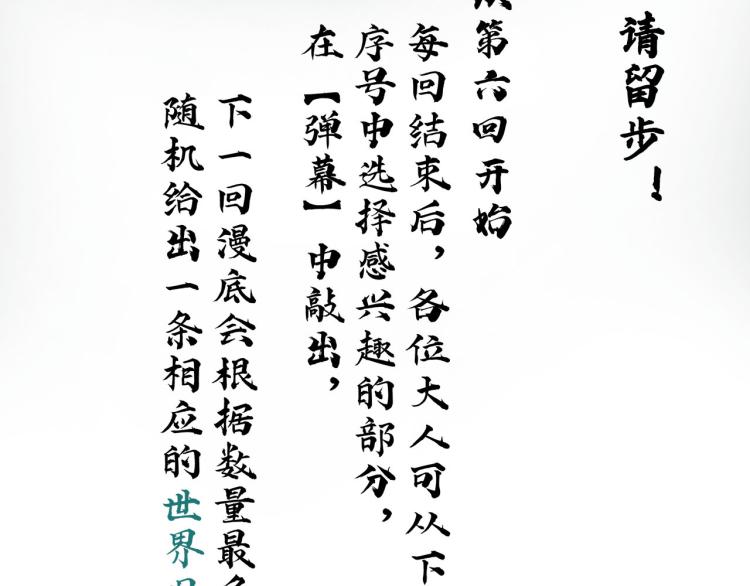 请留步！
第六回开始
每回结束后，各位大人可从下
序号中选择感兴趣的部分，
在【弹幕】中敲出，
下一回漫底会根据数量最
随机给出一条相应的世界